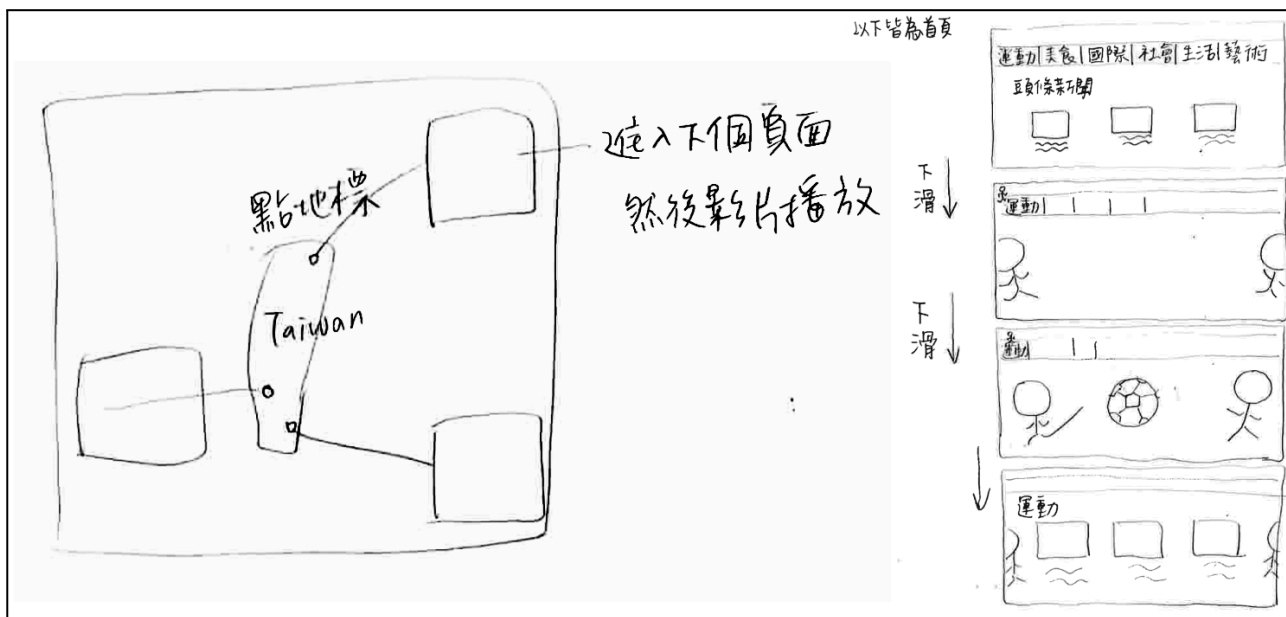 點地標
Taiwan
進入下個頁面
然後影片播放
以下皆為首頁
運動|美食|國際|社會|生活|藝術
頭條新聞
下滑
運動
下滑
運動
運動